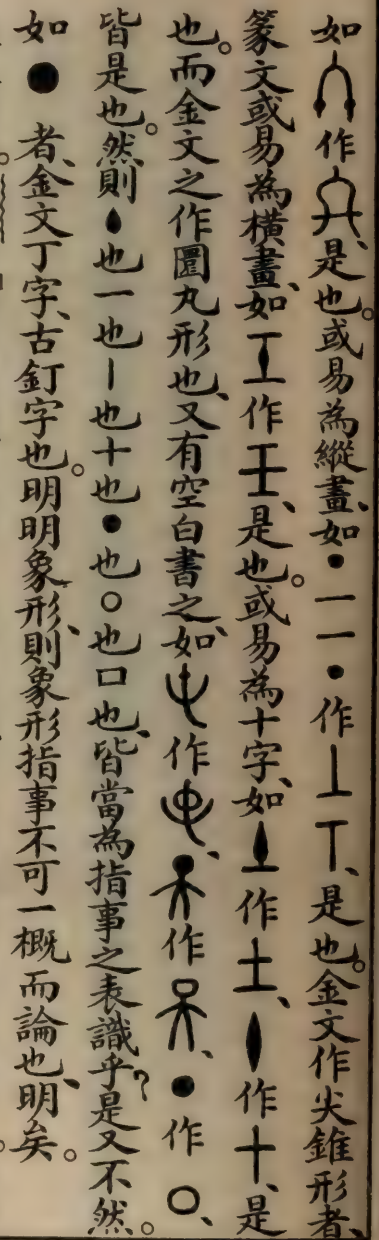 如作是也。或易為縱畫、如●一一●作丄丅、是也。金文作尖錐形者、
篆文或易為橫畫、如作是也。或易為十字、如作土、作十、是
也。而金文之作圜丸形也、又有空白書之、如作、作、●作○、
皆是也。然則也一也丨也十也●也○也口也、皆當為指事之表識乎？是又不然。
如●者、金文丁字、古釘字也。明明象形、則象形指事不可一概而論也、明矣。